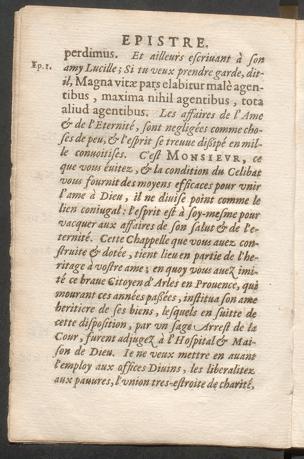 EPISTRE.
perdimus. Et ailleurs escriuant à son
Ep. 1. amy Lucille; Si tu veux prendre garde, dit-
il, Magna vitæ pars elabitur malè agen-
tibus, maxima nihil agentibus, tota
aliud agentibus. Les affaires de l'Ame
& de l'Eternité, sont negligées comme cho-
ses de peu, & l'esprit se treuue dißipé en mil-
le conuoitises. C'est MONSIEVR, ce
que vous éuitez, & la condition du Celibat
vous fournit des moyens efficaces pour vnir
l'ame à Dieu, il ne diuise point comme le
lien coniugal: l'esprit est à soy-mesme pour
vacquer aux affaires de son salut & de l'e-
ternité. Cette Chappelle que vous auez con-
struite & dotée, tient lieu en partie de l'he-
ritage à vostre ame; en quoy vous auez imi-
té ce braue Citoyen d'Arles en Prouence, qui
mourant ces années paßées, institua son ame
heritiere de ses biens, lesquels en suitte de
cette disposition, par vn sage Arrest de la
Cour, furent adjugez à l'Hospital & Mai-
son de Dieu. Ie ne veux mettre en auant
l'employ aux offices Diuins, les liberalitez
aux pauures, l'vnion tres-estroite de charité,